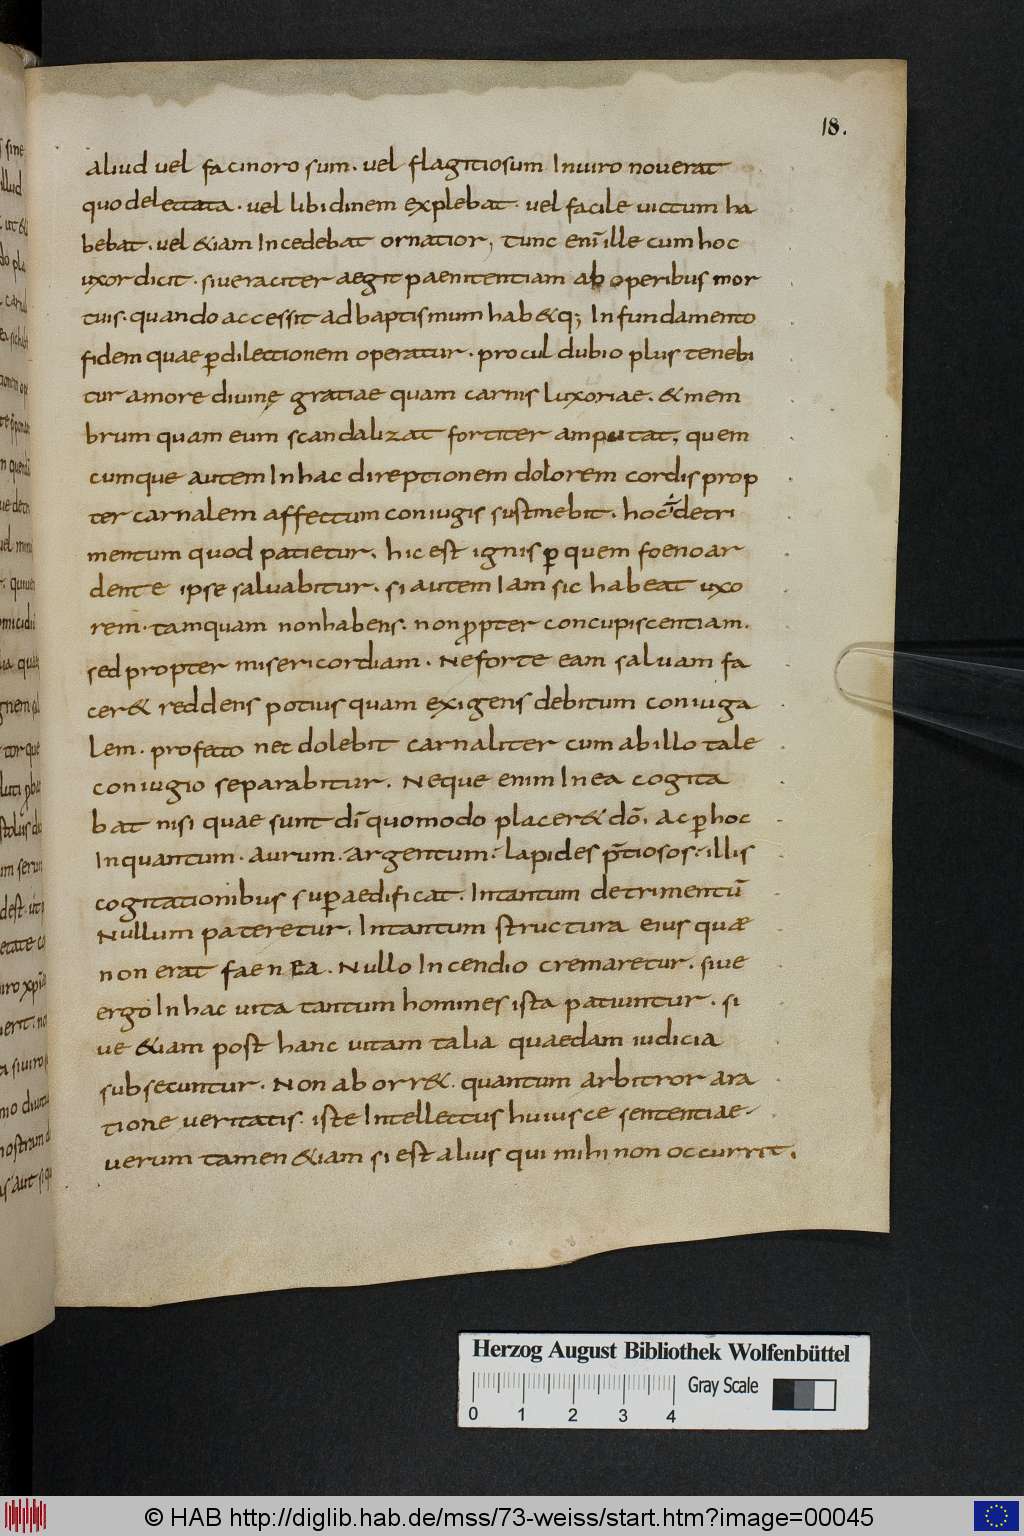 18.
aliud vel facinorosum. vel flagitiosum Inviro noverat
quo delectata. vel libidinem explebat. vel facile victum ha
bebat. vel &iam Incedebat ornatior; tunc enī ille cum hoc
uxor dicit. si veraciter aegit paenitentiam ab operibus mor
tuis. quando accessit ad baptismum hab&q; In fundamento
fidem quae ꝑ dilectionem operatur. procul dubio plus tenebi
tur amore divinę gratiae quam carnis luxoriae. & mem
brum quam eum scandalizat fortiter amputat; quem
cumque autem In hac direptionem dolorem cordis prop
ter carnalem affectum coniugis sustinebit. hoc detri
mentum quod patietur. hic est ignis ꝑ quem foeno ar
dente ipse salvabitur. si autem Iam sic habeat uxo
rem. tamquam non habens. non ꝓpter concupiscentiam.
sed propter misericordiam. Ne forte eam salvam fa
cer& reddens potius quam exigens debitum coniuga
lem. profecto nec dolebit carnaliter cum ab illo tale
coniugio separabitur. Neque enim In ea cogita
bat nisi quae sunt dī quomodo placer& dō. Ac ꝑ hoc
In quantum. aurum. argentum. lapides p̄tiosos. illis
cogitationibus suꝑaedificat. In tantum detrimentū
Nullum pateretur. In tantum structura eius quæ
non erat faenea. Nullo Incendio cremaretur. sive
ergo In hac vita tantum homines ista patiuntur. si
ve &iam post hanc vitam talia quaedam iudicia
subsecuntur. Non abhorr&. quantum arbitror a ra
tione veritatis. iste Intellectus huiusce sententiae.
verum tamen &iam si est alius qui mihi non occurrit.
Herzog August Bibliothek Wolfenbüttel
Gray Scale
0 1 2 3 4
© HAB http://diglib.hab.de/mss/73-weiss/start.htm?image=00045